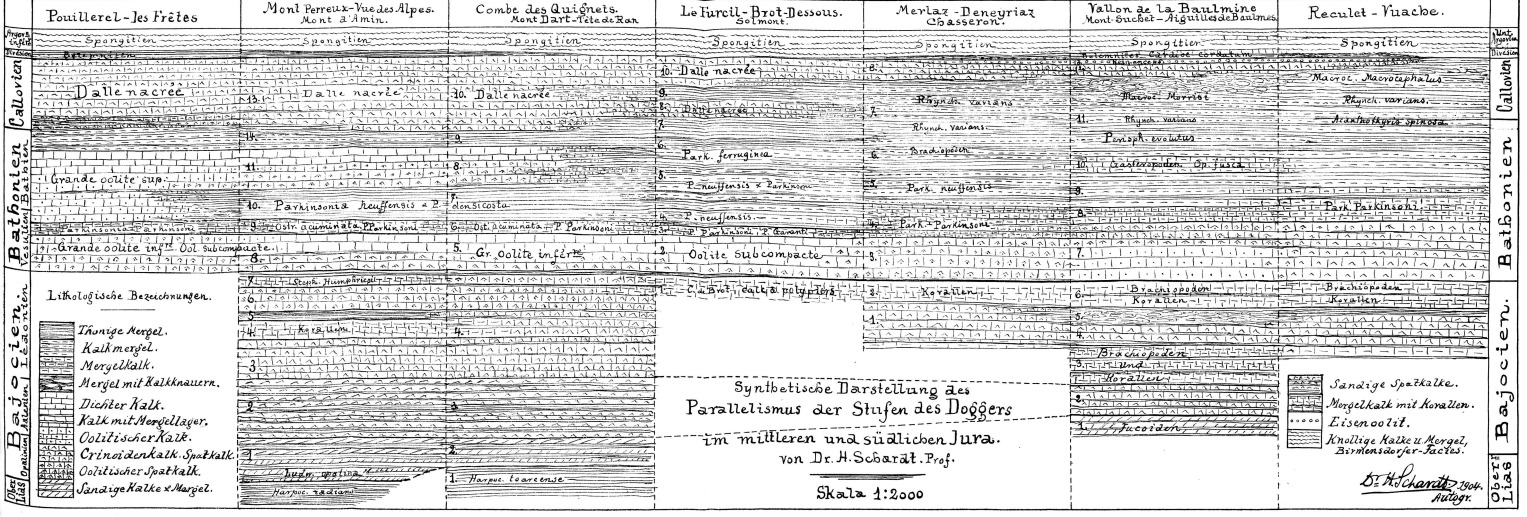 Pouillerel-les Frêtes
Mont Perreux-Vue des Alpes.
Mont d'Amin.
Combe des Quignets.
Mont Dart-Tête de Ran
Le Furcil-Brot-Dessous.
Solmont.
Merlaz-Deneyriaz
Chasseron.
Vallon de la Baulmine
Mont-Suchet-Aiguilles de Baulmes
Reculet-Vuache.
Callovien
Bathonien
Vesulien
Bathien
Bajocien.
Opalinien
Lédonien
Ober Lias
Division
Spongitien
Dalle nacrée
Grande oolite sup.
Parkinsonia Parkinsoni
Grande oolite infre. Ool subcompacte.
Lithologische Bezeichnungen.
Thonige Mergel.
Kalkmergel.
Mergelkalk.
Mergel mit Kalkknauern.
Dichter Kalk.
Kalk mit Mergellager.
Oolitischer Kalk.
Crinoidenkalk. Spatkalk.
Oolitischer Spatkalk.
Sandige Kalke & Mergel.
Spongitien
13. Dalle nacrée
11.
10. Parkinsonia neuffensis & P. densicosta
9. Ostr. acuminata, P. Parkinsoni
8.
7. Steph. Humphriesi
6.
5.
4. Korallen
3
2
1
Ludw. opalina
Harpoc. radians
Spongitien
10. Dalle nacrée
9.
8.
6. Ost. acuminata - P. Parkinsoni
5. Gr. oolite infre
4.
3
2.
1. Harpoc. toarcense
Spongitien
10. Dalle nacrée
9.
8. Dalle nacrée
7.
6.
Park. ferruginea
5.
P. neuffensis & Parkinsoni
4. P. neuffensis.
3. P. Parkinsoni, P. Garanti
2. Oolite subcompacte
Spongitien
8.
7. Rhynch. varians
Rhynch. varians.
6. Brachiopoden
5. Park. neuffensis
4. Park. Parkinsoni
3.
2. Korallen
1.
Spongitien
Macroc. Morrisi
11. Rhynch. varians
Perisph. evolutus
10. Gasteropoden Op. fusca
9.
8.
7.
6. Brachiopoden
Korallen
5.
4.
Brachiopoden
3. und
Korallen
2.
1. Fucoiden
Spongitien
Macroc. Macrocephalus
Rhynch. varians.
Acanthothyris spinosa
Park. Parkinsoni
Brachiopoden
Korallen
Division
Callovien
Bathonien
Bajocien.
Ober Lias
Synthetische Darstellung des
Parallelismus der Stufen des Doggers
im mittleren und südlichen Jura.
von Dr. H. Schardt. Prof.
Skala 1:2000
Sandige Spatkalke.
Mergelkalk mit Korallen.
Eisenoolit.
Knollige Kalke u. Mergel,
Birmensdorfer-Facies.
Dr. H. Schardt, 1904.
Autogr.